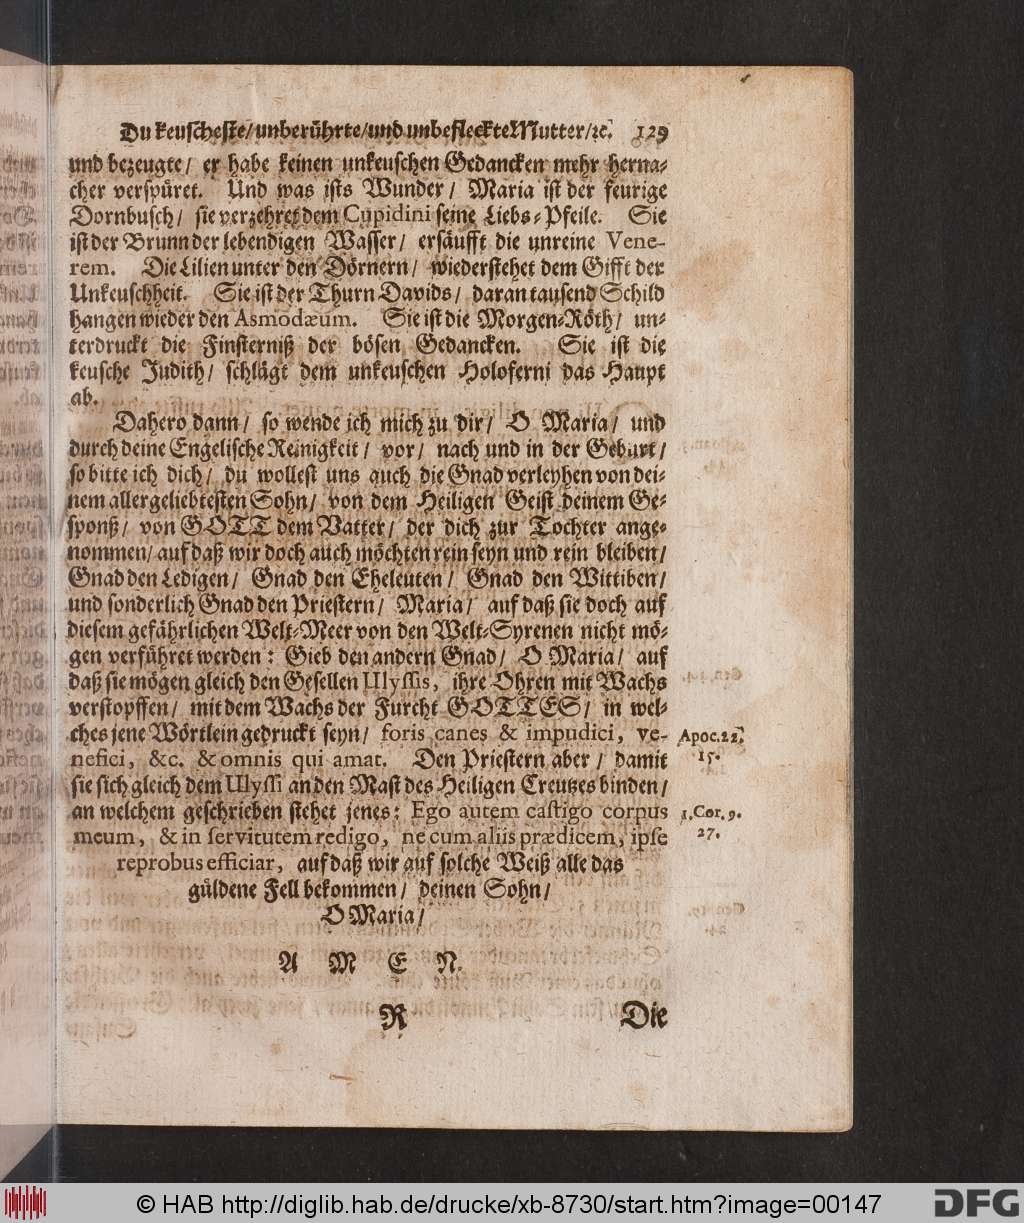 Du keuscheste/ unberührte/ und unbefleckte Mutter/ ꝛc. 129
und bezeugte/ er habe keinen unkeuschen Gedancken mehr herna-
cher verspüret. Und was ists Wunder/ Maria ist der feurige
Dornbusch/ sie verzehret dem Cupidini seine Liebs-Pfeile. Sie
ist der Brunn der lebendigen Wasser/ ersäufft die unreine Vene-
rem. Die Lilien unter den Dörnern/ wiederstehet dem Gifft der
Unkeuschheit. Sie ist der Thurn Davids/ daran tausend Schild
hangen wieder den Asmodæum. Sie ist die Morgen-Röth/ un-
terdruckt die Finsterniß der bösen Gedancken. Sie ist die
keusche Judith/ schlägt dem unkeuschen Holoferni das Haupt
ab.
Dahero dann/ so wende ich mich zu dir/ O Maria/ und
durch deine Engelische Reinigkeit/ vor/ nach und in der Geburt/
so bitte ich dich/ du wollest uns auch die Gnad verleyhen von dei-
nem allergeliebtesten Sohn/ von dem Heiligen Geist deinem Ge-
sponß/ von GOTT dem Vatter/ der dich zur Tochter ange-
nommen/ auf daß wir doch auch möchten rein seyn und rein bleiben/
Gnad den Ledigen/ Gnad den Eheleuten/ Gnad den Wittiben/
und sonderlich Gnad den Priestern/ Maria/ auf daß sie doch auf
diesem gefährlichen Welt-Meer von den Welt-Syrenen nicht mö-
gen verführet werden: Gieb den andern Gnad/ O Maria/ auf
daß sie mögen gleich den Gesellen Ulyssis, ihre Ohren mit Wachs
verstopffen/ mit dem Wachs der Furcht GOTTES/ in wel-
ches jene Wörtlein gedruckt seyn/ foris canes & impudici, ve-
nefici, &c. & omnis qui amat. Den Priestern aber/ damit
sie sich gleich dem Ulyssi an den Mast des Heiligen Creutzes binden/
an welchem geschrieben stehet jenes: Ego autem castigo corpus
meum, & in servitutem redigo, ne cum aliis prædicem, ipse
reprobus efficiar, auf daß wir auf solche Weiß alle das
güldene Fell bekommen/ deinen Sohn/
O Maria/
A M E N.
R Die
Apoc. 22.
15.
1. Cor. 9.
27.
© HAB http://diglib.hab.de/drucke/xb-8730/start.htm?image=00147
DFG